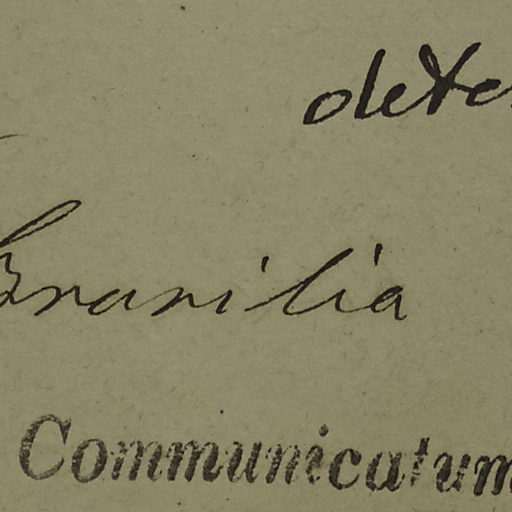 dete
Brasilia
Communicatum